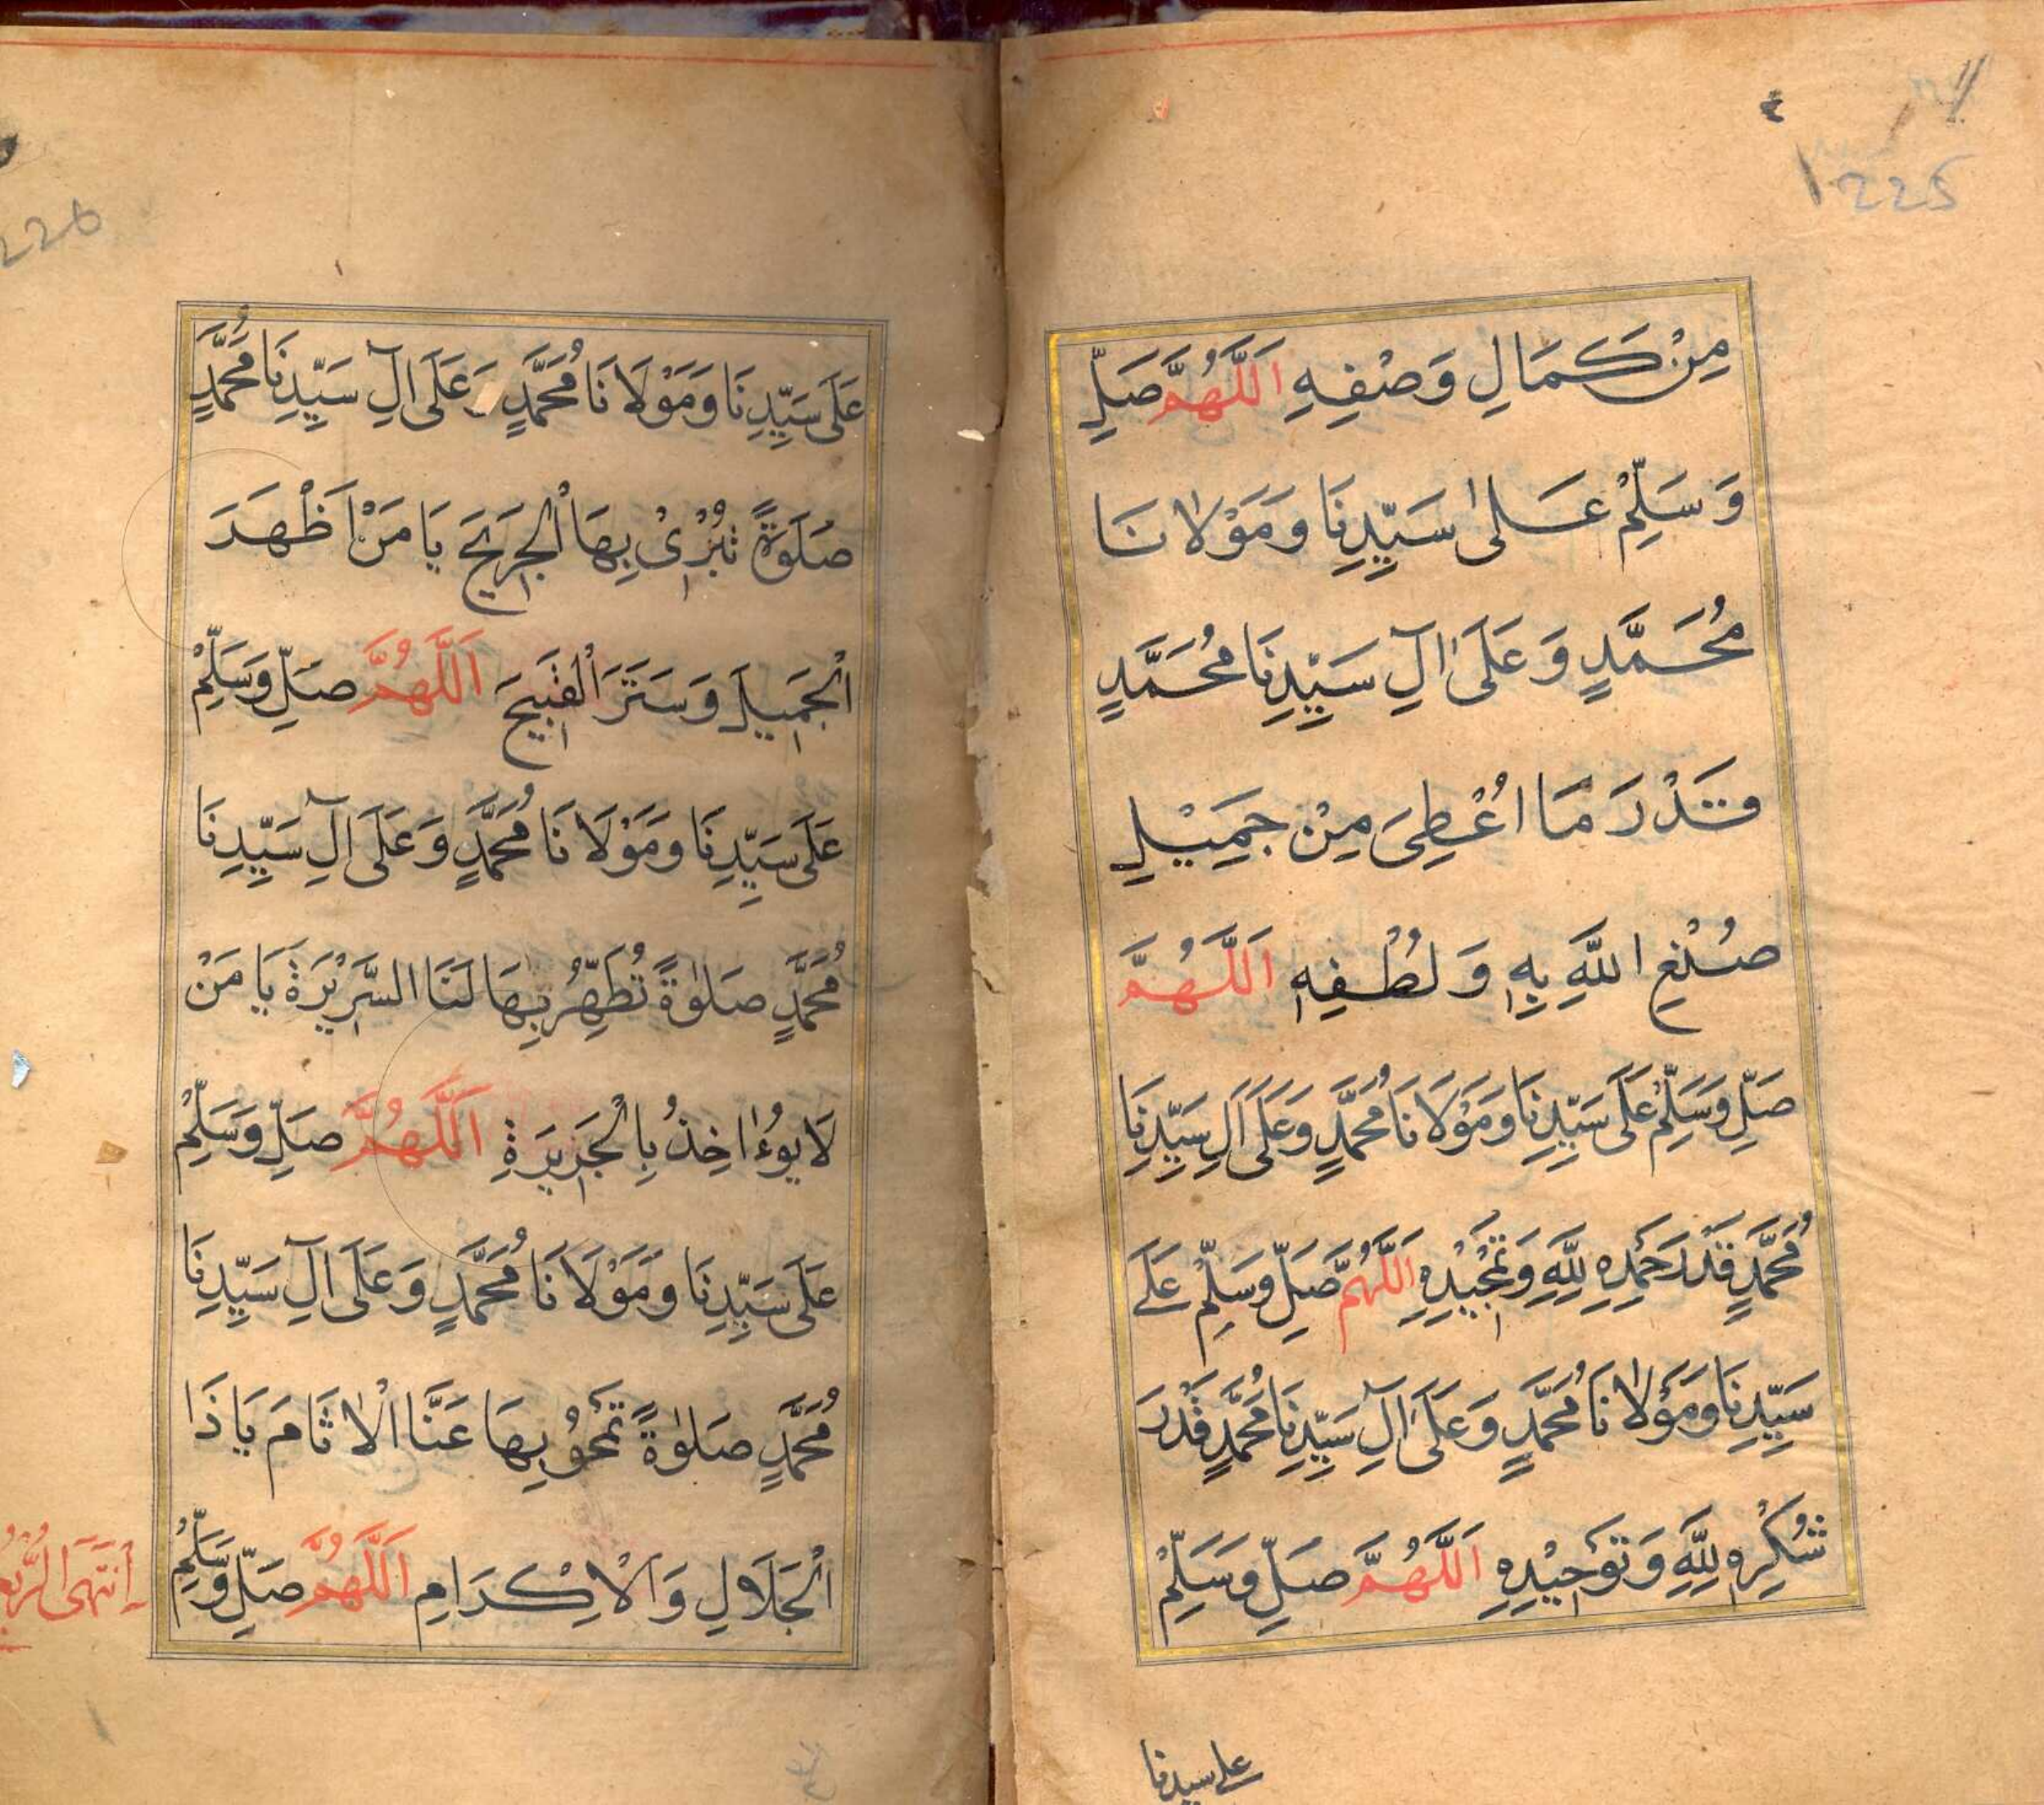 225
مِنْ كَمَالِ وَصْفِهِ اَللّٰهُمَّ صَلِّ
وَسَلِّمْ عَلىٰ سَيِّدِنَا وَمَوْلَانَا
مُحَمَّدٍ وَعَلَىٰ اٰلِ سَيِّدِنَا مُحَمَّدٍ
قَدْرَ مَا اُعْطِىَ مِنْ جَمِيْلِ
صُنْعِ اللّٰهِ بِهٖ وَلُطْفِهٖ اَللّٰهُمَّ
صَلِّ وَسَلِّمْ عَلَى سَيِّدِنَا وَمَوْلَانَا مُحَمَّدٍ وَعَلَى اٰلِ سَيِّدِنَا
مُحَمَّدٍ قَدْرَ حَمْدِهِ لِلّٰهِ وَتَمْجِيْدِهِ اَللّٰهُمَّ صَلِّ وَسَلِّمْ عَلَے
سَيِّدِنَا وَمَوْلَانَا مُحَمَّدٍ وَعَلَى اٰلِ سَيِّدِنَا مُحَمَّدٍ قَدْرَ
شُكْرِهٖ لِلّٰهِ وَتَوْحِيْدِهِ اَللّٰهُمَّ صَلِّ وَسَلِّمْ
علے سيدنا
226
عَلَى سَيِّدِنَا وَمَوْلَانَا مُحَمَّدٍ وَعَلَى اٰلِ سَيِّدِنَا مُحَمَّدٍ
صَلَوٰةً تُبْرِئُ بِهَا الْجَرِيْحَ يَا مَنْ اَظْهَرَ
الْجَمِيْلَ وَسَتَرَ الْقَبِيْحَ اَللّٰهُمَّ صَلِّ وَسَلِّمْ
عَلَى سَيِّدِنَا وَمَوْلَانَا مُحَمَّدٍ وَعَلَى اٰلِ سَيِّدِنَا
مُحَمَّدٍ صَلوٰةً تُطَهِّرُ بِهَا لَنَا السَّرِيْرَةَ يَا مَنْ
لَا يُؤَاخِذُ بِالْجَرِيْرَةِ اَللّٰهُمَّ صَلِّ وَسَلِّمْ
عَلَى سَيِّدِنَا وَمَوْلَانَا مُحَمَّدٍ وَعَلَى اٰلِ سَيِّدِنَا
مُحَمَّدٍ صَلوٰةً تَمْحُوْ بِهَا عَنَّا الْاٰثَامَ يَا ذَا
الْجَلَالِ وَالْاِكْرَامِ اَللّٰهُمَّ صَلِّ وَسَلِّمْ
اِنْتَهَى الرُّبُعُ